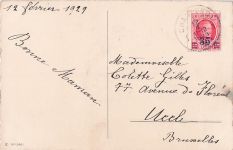 12 février, 1929
Bonne Maman
Mademoiselle
Colette Gilles
77 Avenue de Floréal
Uccle
Bruxelles